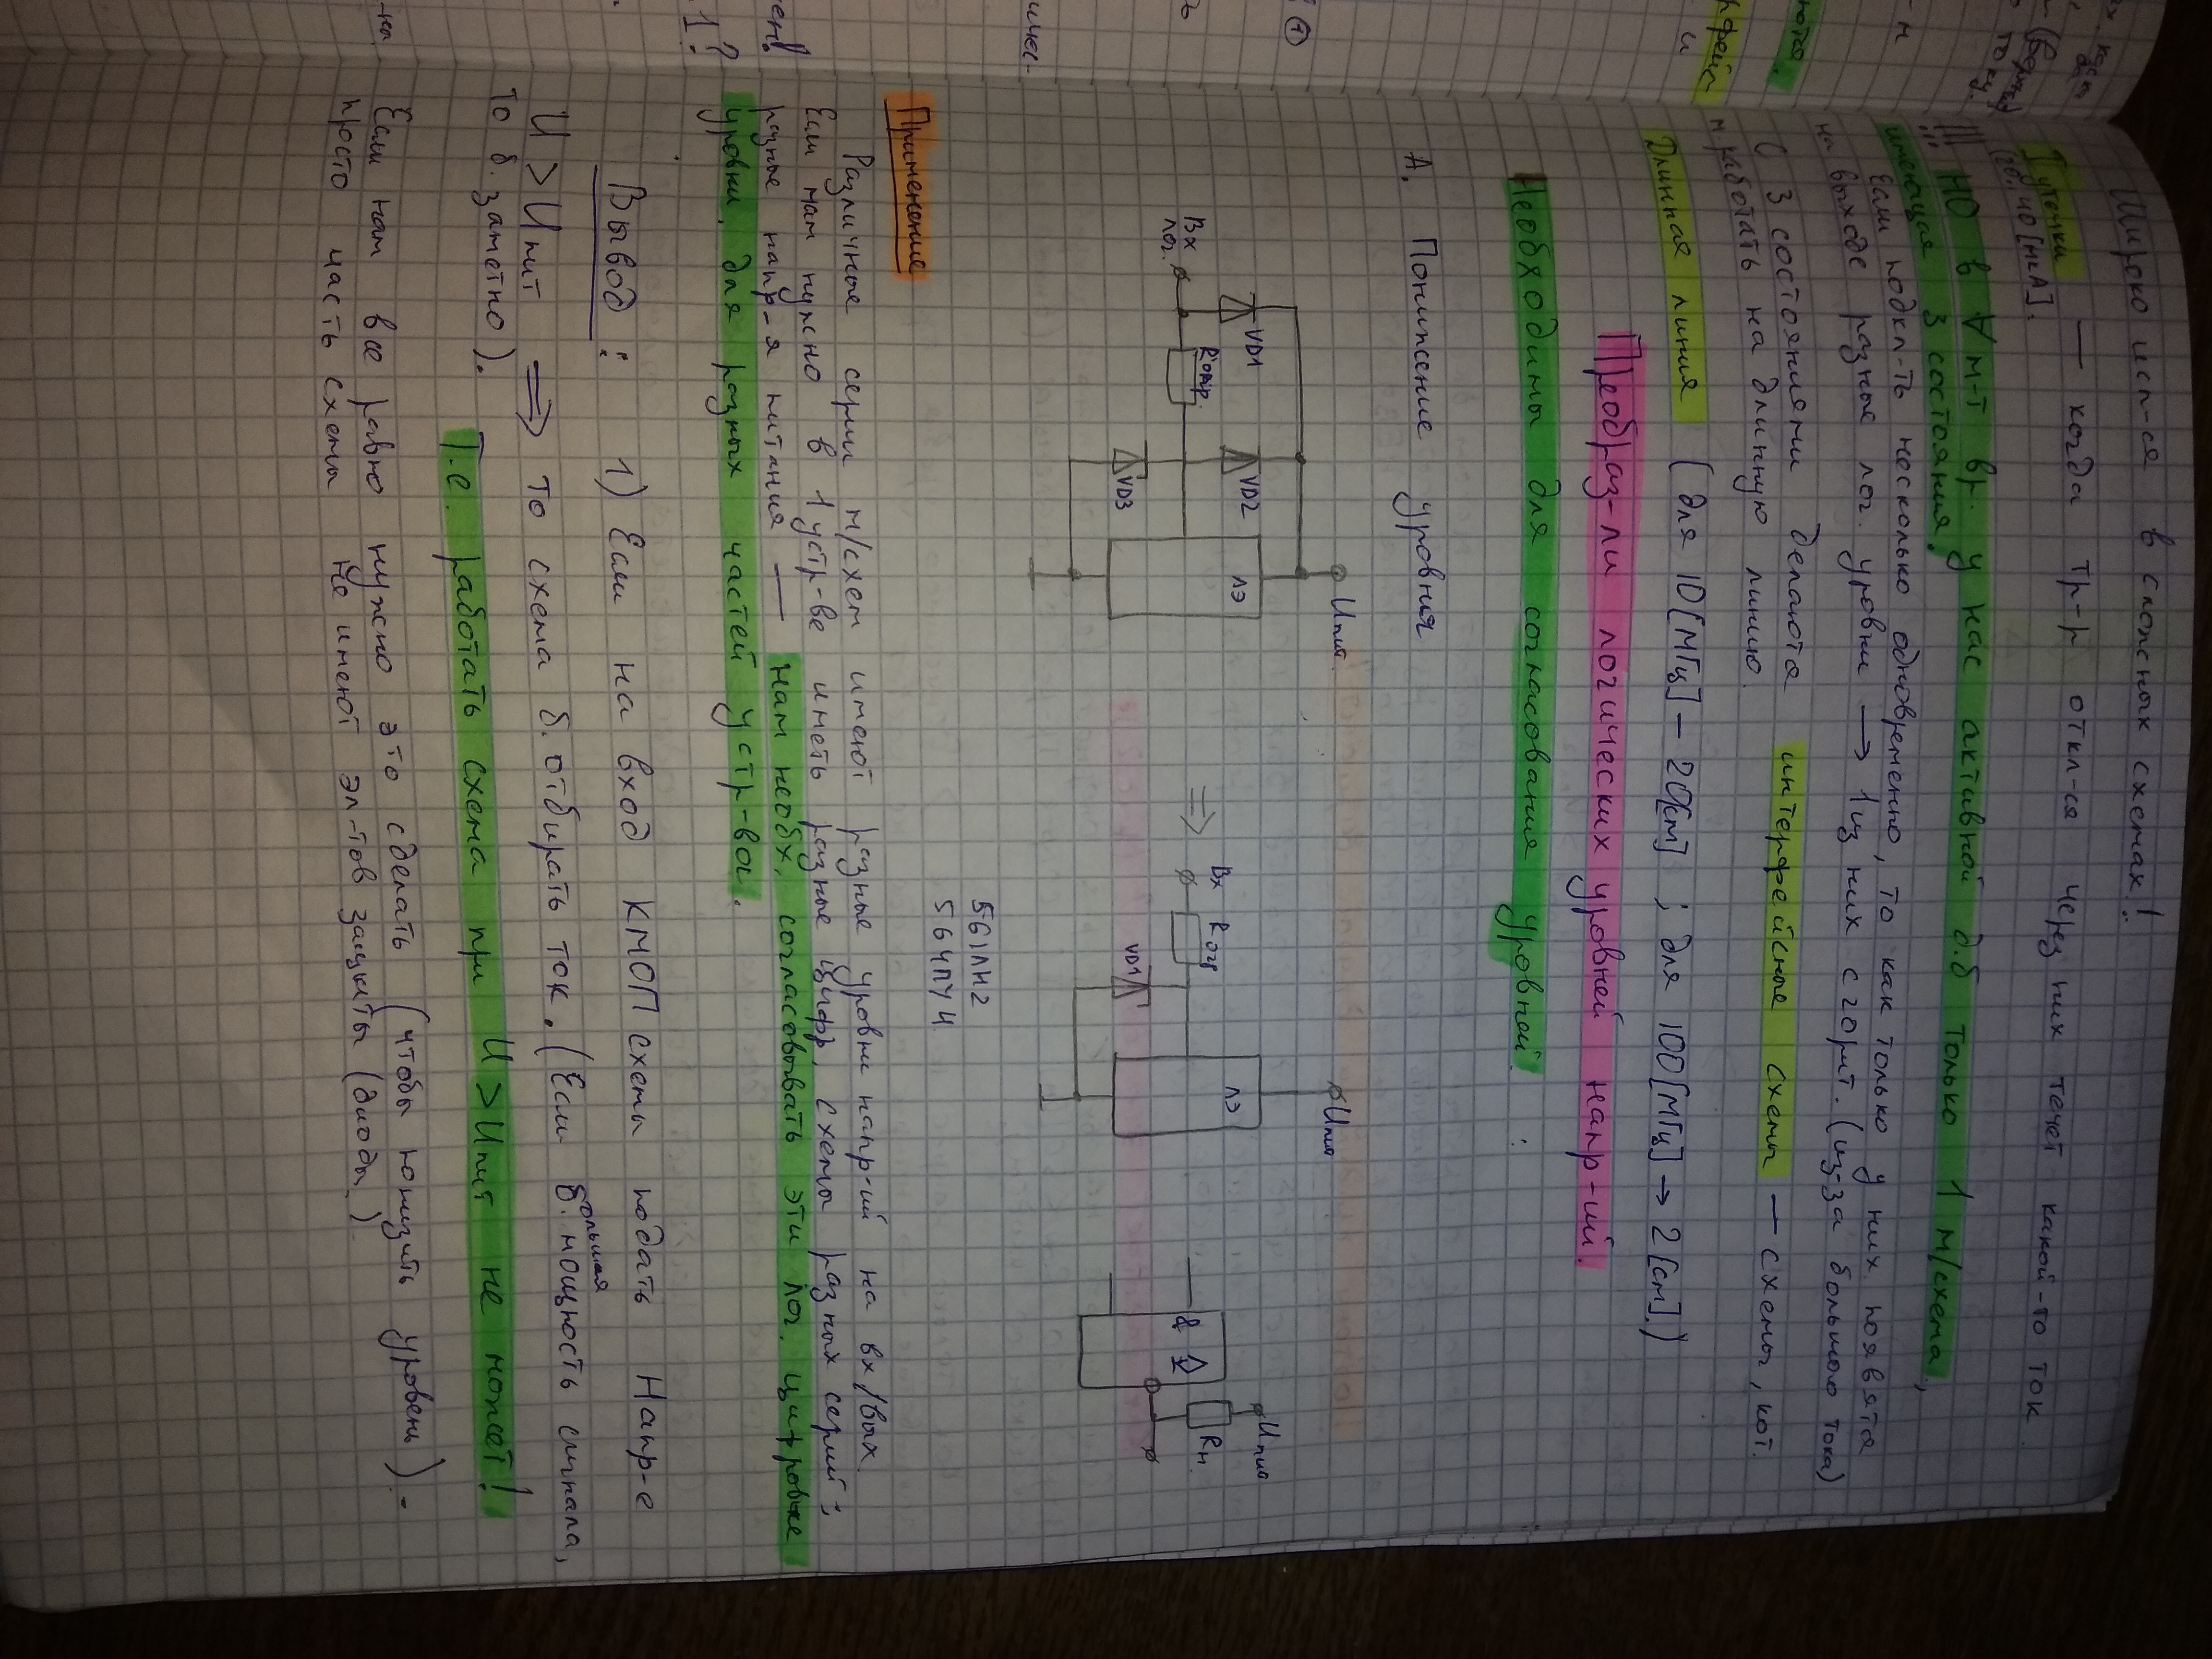 Широко исп-ся в сложных схемах!
Тутечки — когда тр-р откл-ся через них течёт какой-то ток
(20.40 [мкА].
!!! НО в ∀ м-т вр. у нас активной д.б только 1 м/схема,
имеющая 3 состояния.
Если подкл-ть несколько одновременно, то как только у них появятся
на выходе разные лог. уровни → 1 из них сгорит. (из-за большого тока)
С 3 состояниями делают интерфейсные схемы — схемы, кот.
м. работать на длинную линию.
Длинная линия (для 10[МГц] – 20[см] ; для 100[МГц] → 2[см].)
Преобраз-ли логических уровней напр-ий.
Необходимы для согласования уровней :
А. Понижение уровня
Uпит
VD1
VD2
ЛЭ
Вх
лог.
Rогр.
VD3
⇒
Uпит
ЛЭ
Вх
Rогр
VD1
Uпит
Rн.
&
561ЛН2
564ПУ4
Применение
Различные серии м/схем имеют разные уровни напр-ий на вх/вых.
Если нам нужно в 1 устр-ве иметь разные цифр. схемы разных серий;
разные напр-я питания — Нам необх. согласовывать эти лог. цифровые
уровни, для разных частей устр-ва.
Вывод : 1) Если на вход КМОП схемы подать Напр-е
U > Uпит ⟹ то схема б. отбирать ток. (Если б. мощность сигнала,
большая
то б. заметно).
Т.е. работать схема при U > Uпит не может!
Если нам все равно нужно это сделать (чтобы понизить уровень) -
просто часть схемы не имеют эл-тов защиты (диоды.)